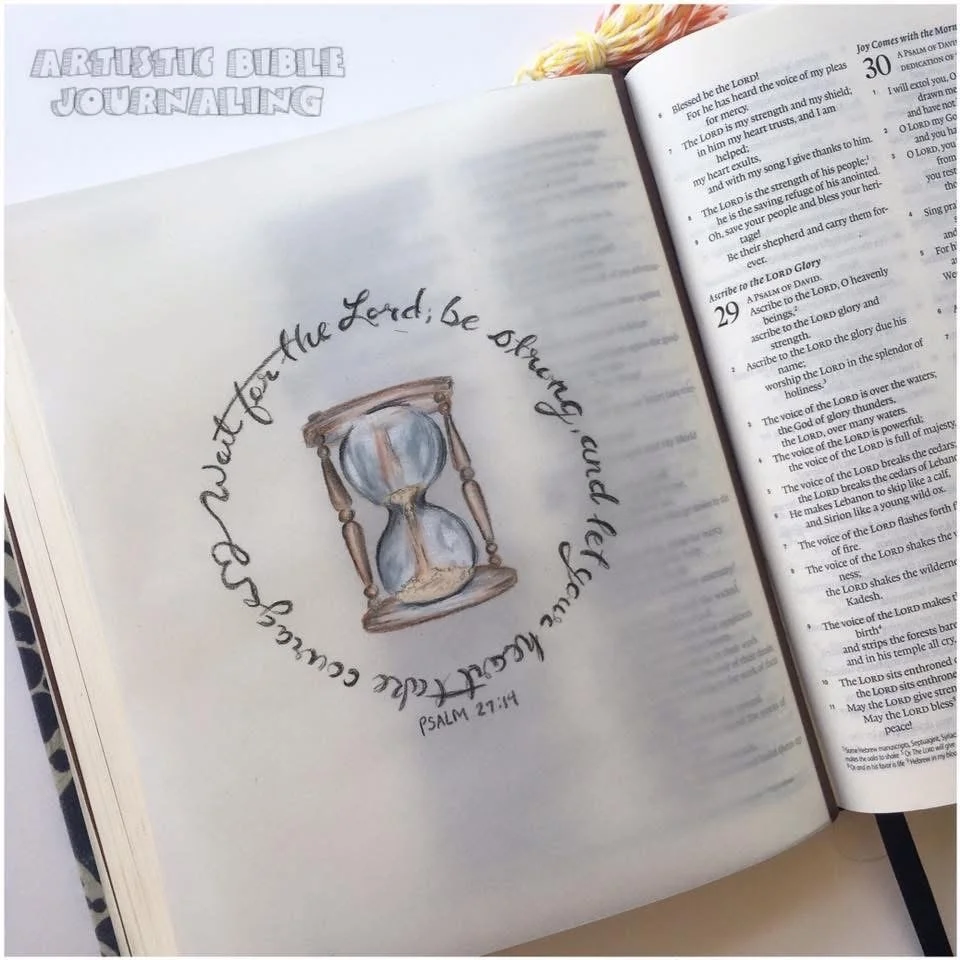 ARTISTIC BIBLE
JOURNALING
Wait for the Lord; be strong, and let your heart take courage
PSALM 27:14
8 Blessed be the LORD!
For he has heard the voice of my pleas
for mercy.
7 The LORD is my strength and my shield;
in him my heart trusts, and I am
helped;
my heart exults,
and with my song I give thanks to him.
8 The LORD is the strength of his people;
he is the saving refuge of his anointed.
9 Oh, save your people and bless your heri-
tage!
Be their shepherd and carry them for-
ever.
Ascribe to the LORD Glory
29 A PSALM OF DAVID.
Ascribe to the LORD, O heavenly
beings,2
ascribe to the LORD glory and
strength.
2 Ascribe to the LORD the glory due his
name;
worship the LORD in the splendor of
holiness.3
3 The voice of the LORD is over the waters;
the God of glory thunders,
the LORD, over many waters.
4 The voice of the LORD is powerful;
the voice of the LORD is full of majesty.
5 The voice of the LORD breaks the cedars;
the LORD breaks the cedars of Leban
6 He makes Lebanon to skip like a calf,
and Sirion like a young wild ox.
7 The voice of the LORD flashes forth f
of fire.
8 The voice of the LORD shakes the
ness;
the LORD shakes the wilderne
Kadesh.
9 The voice of the LORD makes
birth4
and strips the forests bare
and in his temple all cry,
10 The LORD sits enthroned
the LORD sits enthrone
11 May the LORD give stren
May the LORD bless
peace!
Joy Comes with the Morn
30 A PSALM OF DAVI
DEDICATION OF
1 I will extol you, O
drawn me
and have not
2 O LORD my Go
and you ha
3 O LORD, you
from
you rest
the
4 Sing pra
and
5 For h
and
We